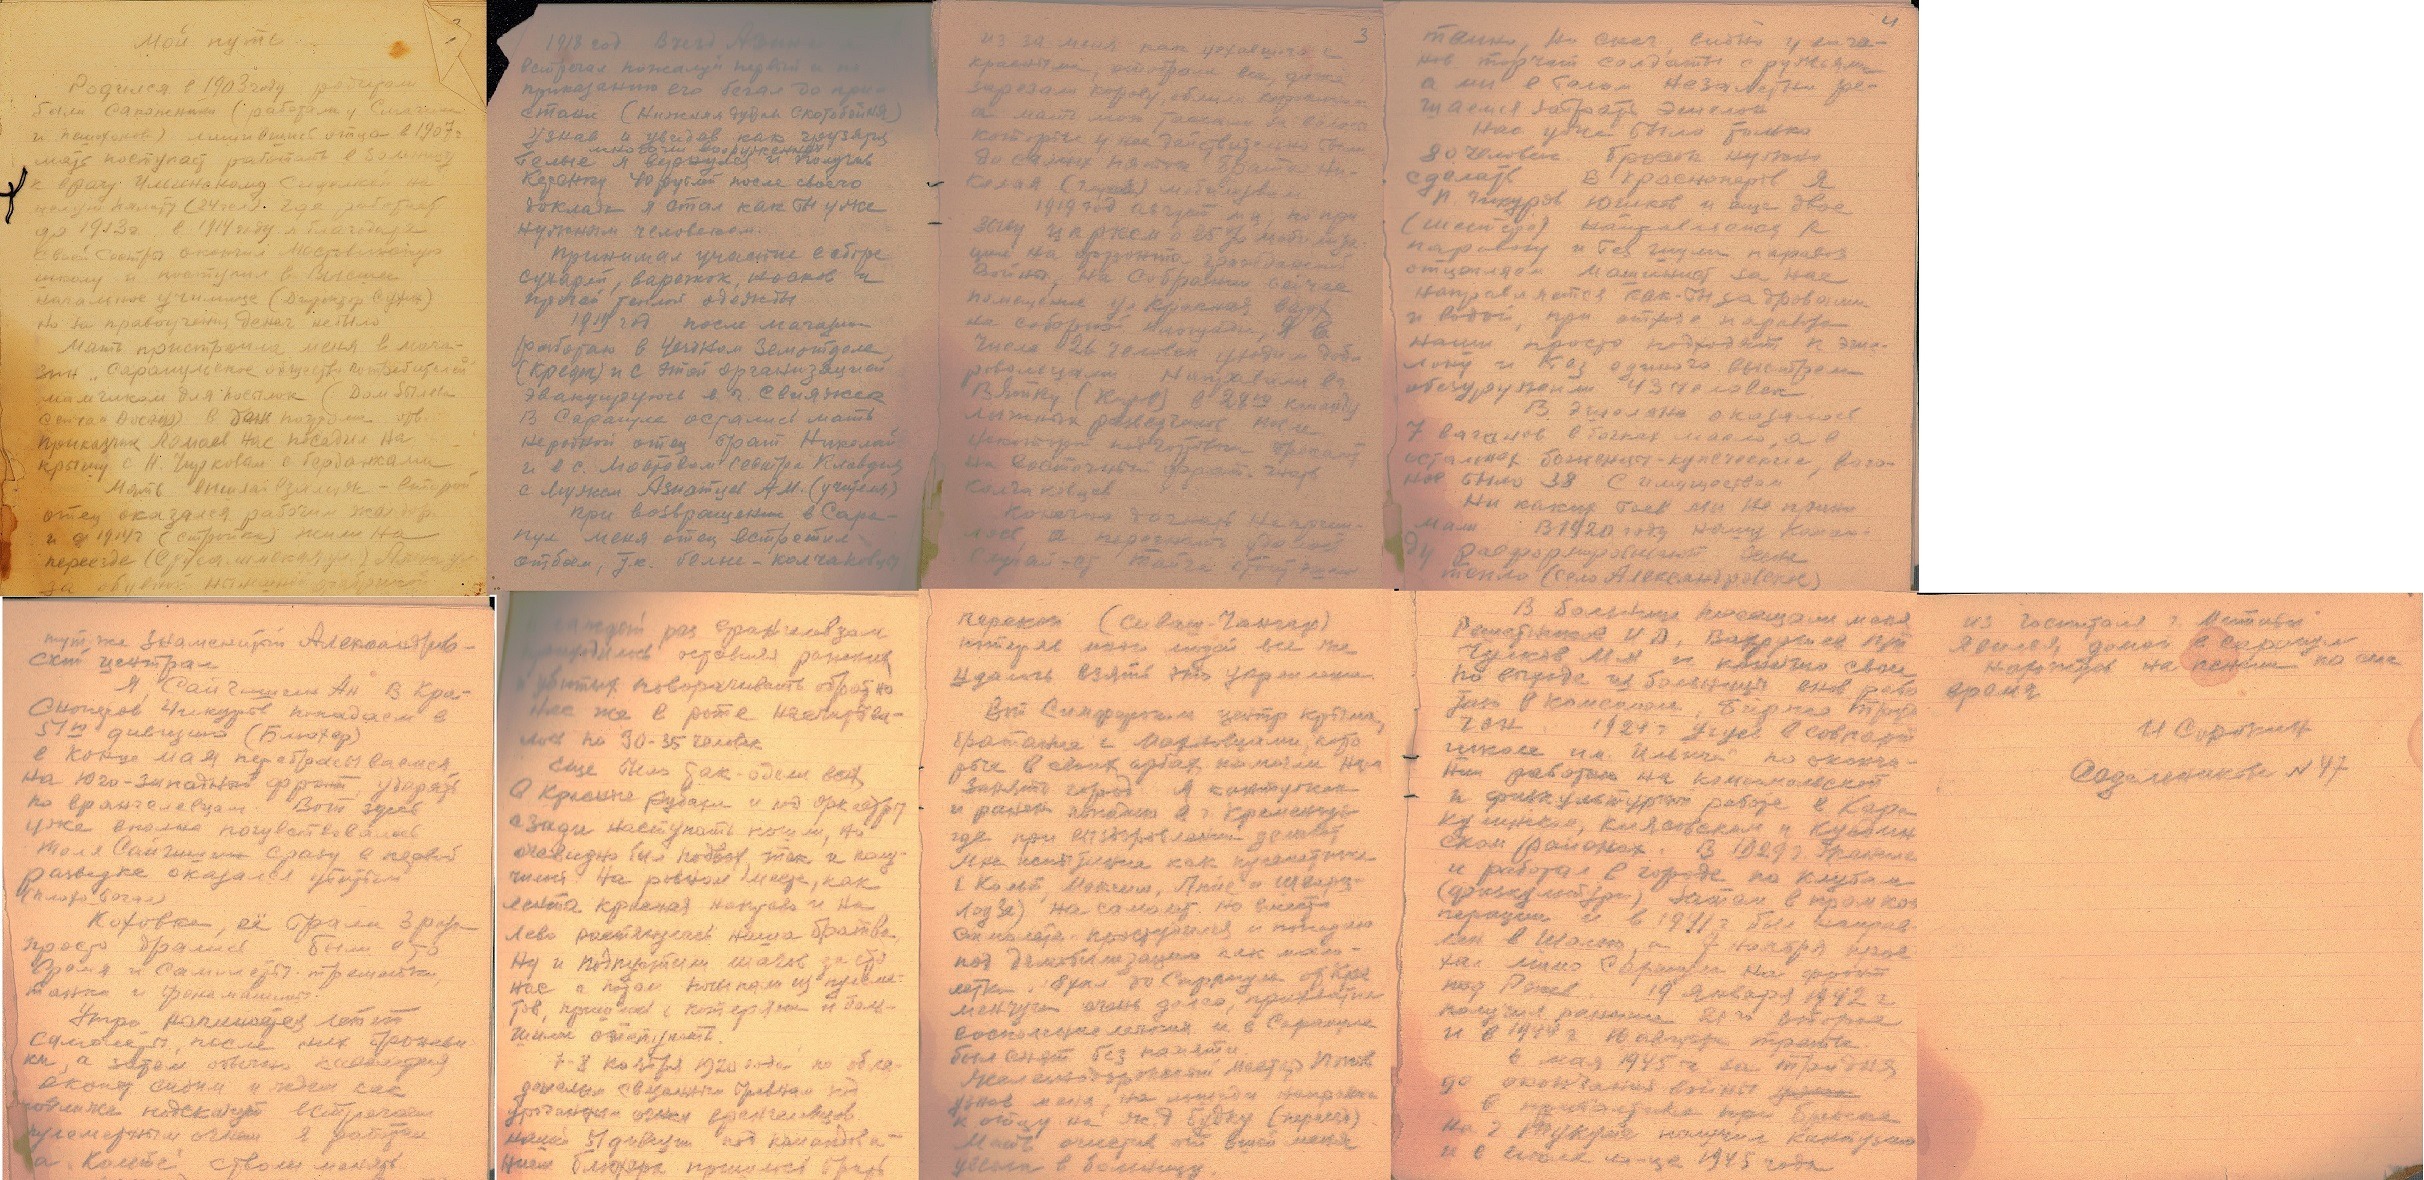 Мой путь
Родился в 1903 году родители
были Сапожники (работали у Смагина
и Пешехонов) лишившись отца в 1907 г
мать поступает работать в больницу
к врачу Ильинскому Сиделкой на
где работает
до 1913 г. в 1914 году я благодаря
своей сестры окончил Мостовинскую
школу и поступил в Высшее
начальное училище (Директор Сухих)
но за правоучения денег не было
Мать пристроила меня в мага-
зин „Сарапульское общество потребителей"
мальчиком для посылок (Дом бывш
сейчас Досааф) в дни погрома отв.
приказчик Ломаев нас посадил на
крышу с Н. Чирковым с берданками
Мать вышла взамуж - второй
отец оказался рабочим жел. дор.
и с 1914 г (стройка) жили на
переезде
за обувной нынешней фабрикой
1918 год Въезд Азина
встречал пожалуй первый и по
приказанию его бегал до прис-
тани (Нижняя дубль Скотобойня)
Узнав и увидев как грузятся
многочи вооруженные
белые я вернулся и получив
Керенку 40 рублей после своего
доклада я стал как бы уже
нужным человеком.
Принимал участие в сборе
сухарей, варежок, носков и
прочей теплой одежды
1919 год после магазина
работаю в Уездном Земотделе,
(Кредты) и с этой организацией
эвакуируюсь в г. Свияжск
В Сарапуле остались мать
неродной отец брат Николай
и в с. Мостовом сестра Клавдия
с мужем Азиатцев А.М. (учитель)
При возвращении в Сара-
пул меня отец встретил
отбоем, т.к. белые - колчаковцы
3
из за меня как уехавшего с
красными, отобрали все, даже
зарезали корову, облили керосином
а мать мою таскали за волосы
которые у нее действительно были
до самых пяток брата Ни-
колая (глухой) мобилизовали
1919 год август м-ц, по при
зыву цк рксм о 25% мобилиза-
ции на фронта гражданской
войны, на собрании сейчас
помещение ул Красная
на соборной площади, Я в
числе 26 человек уходим добр
ровольцами Направили в г.
Вятку (Киров) в 28ю команду
лыжных разведчиков после
некоторой подготовки бросают
на Восточный фронт гнать
колчаковцев
Конечно догнать не приш-
лось, а перегнать удалось
Случай - ст Тайга стоит эшелон
4
танки, на снег, видно у ваго-
нов торчат солдаты с ружьями
а мы в белом незаметны ре-
шаемся забрать эшелон
Нас уже было только
80 человек бросок нужно
сделать В Красноперов Я
Н. Чикуров Юшков и еще двое
(шестеро) направляемся к
паровозу и без шума паровоз
отцепляем машинист за нас
направляется как-бы за дровами
и водой, при отходе паровоза
наши просто подходят к эше-
лону и без единого выстрела
обезоружили 43 человек.
В эшелоне оказалось
7 вагонов в бочках масло, а в
остальных беженцы-купеческие, ваго-
нов было 38 с имуществом
Ни каких боев мы не прини
мали В 1920 году нашу коман-
ду расформировывают
(село Александровское)
тут же знаменитый Александров-
ский централ
Я, Сайчишин Ан. В Кра-
сноперов Чикуров попадаем в
51ю дивизию (Блюхер)
в конце мая перебрасываемся
на Юго-западный фронт, ударять
по врангелевцам Вот здесь
уже вполне почувствовались
Толя Сайчишин сразу в первой
разведке оказался убитым
(плохо бегал)
Каховка, её брали 3 раза
просто дрались были в то
время и самолеты-трещетки,
танки и бронемашины.
Утро начинается летят
самолеты, после них броневи
ки, а затем обычно кавалерия
окопы сидим и ждем как
поближе подскачут встречаем
пулеметным огнем Я работал
на „Кольте" стволы менять
каждый раз врангелевцам
приходилось оставляя раненых
и убитых поворачивать обратно
Нас же в роте насчитыва-
лось по 30-35 человек
Еще было так-одели всех
в красные рубахи и под оркестры
сзади наступать пошли, но
очевидно был подвох, так и полу-
чилось. На ровном месте, как
лента красная направо и на
лево растянулась наша братва,
Ну и подпустили шагов за сто
нас а потом посыпали из пулеме-
тов, пришлось с потерями и боль-
шими отступить.
7-8 ноября 1920 года по обле-
денелым
ураганным огнем врангелевцев.
нашей 51 дивизии под командова-
нием Блюхера пришлось брать
перекоп (Сиваш-Чонгар)
потеряв много людей все же
удалось взять это укрепление.
Вот Симферополь центр Крыма,
братание с Махновцами, кото
рые в своих арбах помогли нам
занять город Я контужен
и ранен попадаю в г. Кременчуг
где при выздоровлении делают
мне испытание как пулеметчика
(Кольт, Максим, Люис и Шварц-
лозе) на самолет. но вместо
самолета простудился и попадаю
под демобилизацию как мало-
летка. Ехал до Сарапула от Кре
менчуга очень долго, прихватив
воспаление легких и в Сарапуле
был снят без памяти
Железнодорожный мастер Попов
узнав меня на лошади направил
к отцу на ж.д будку (переезд)
Мать очистив от вшей меня
увезла в больницу.
В больнице посещали меня
Решетников И Д. Вахрушев Пут
Чулков М.Я и конечно свои
По выходе из больницы снова рабо
таю в комсомоле, биржа труда
ЧОН. 1924 г Учусь в совпарт
школе им. Ильича по оконча-
нии работаю на комсомольской
и физкультурной работе в Кара-
кулинском, Киясовском и Куединском
районах. В 1929 г.
и работал в городе по клубам
(физкультура) Затем в промкоо
перации и в 1941 г был направ
лен в а 7 ноября прое
хал мимо Сарапула на фронт
под Ржев. 19 января 1942 г
получил ранение 21 го второе
и в 1944 г Январь третье.
в мая 1945 г за три дня
до окончания войны
в прибалтике при
на 2 Тукумс получил контузию
и в июле м-це 1945 года
из госпиталя г. Митавы
явился домой в Сарапул
нахожусь на пенсии по сие
время
И Сорокин
Седельникова N 47